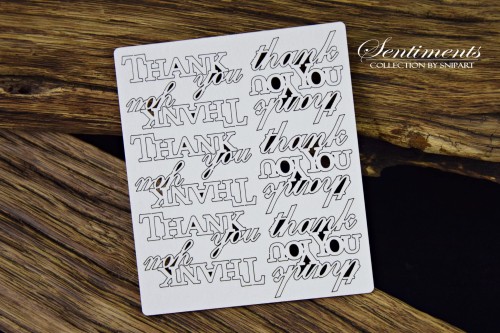 Sentiments
COLLECTION BY SNIPART
THANK you
thank YOU
THANK you
thank YOU
THANK you
thank YOU
THANK you
thank YOU
THANK you
thank YOU
THANK you
thank YOU